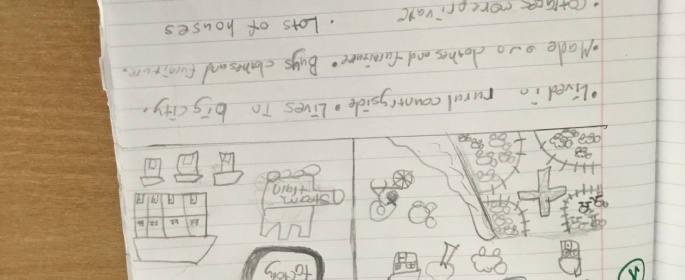 factory
Steam
train
• Lived in rural countryside • Lives in big city.
• Made own clothes and furniture • Buys clothes and furniture.
• Cottages were private • Lots of houses